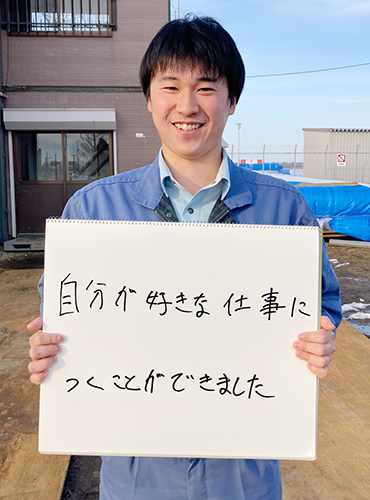 自分が好きな仕事に
つくことができました